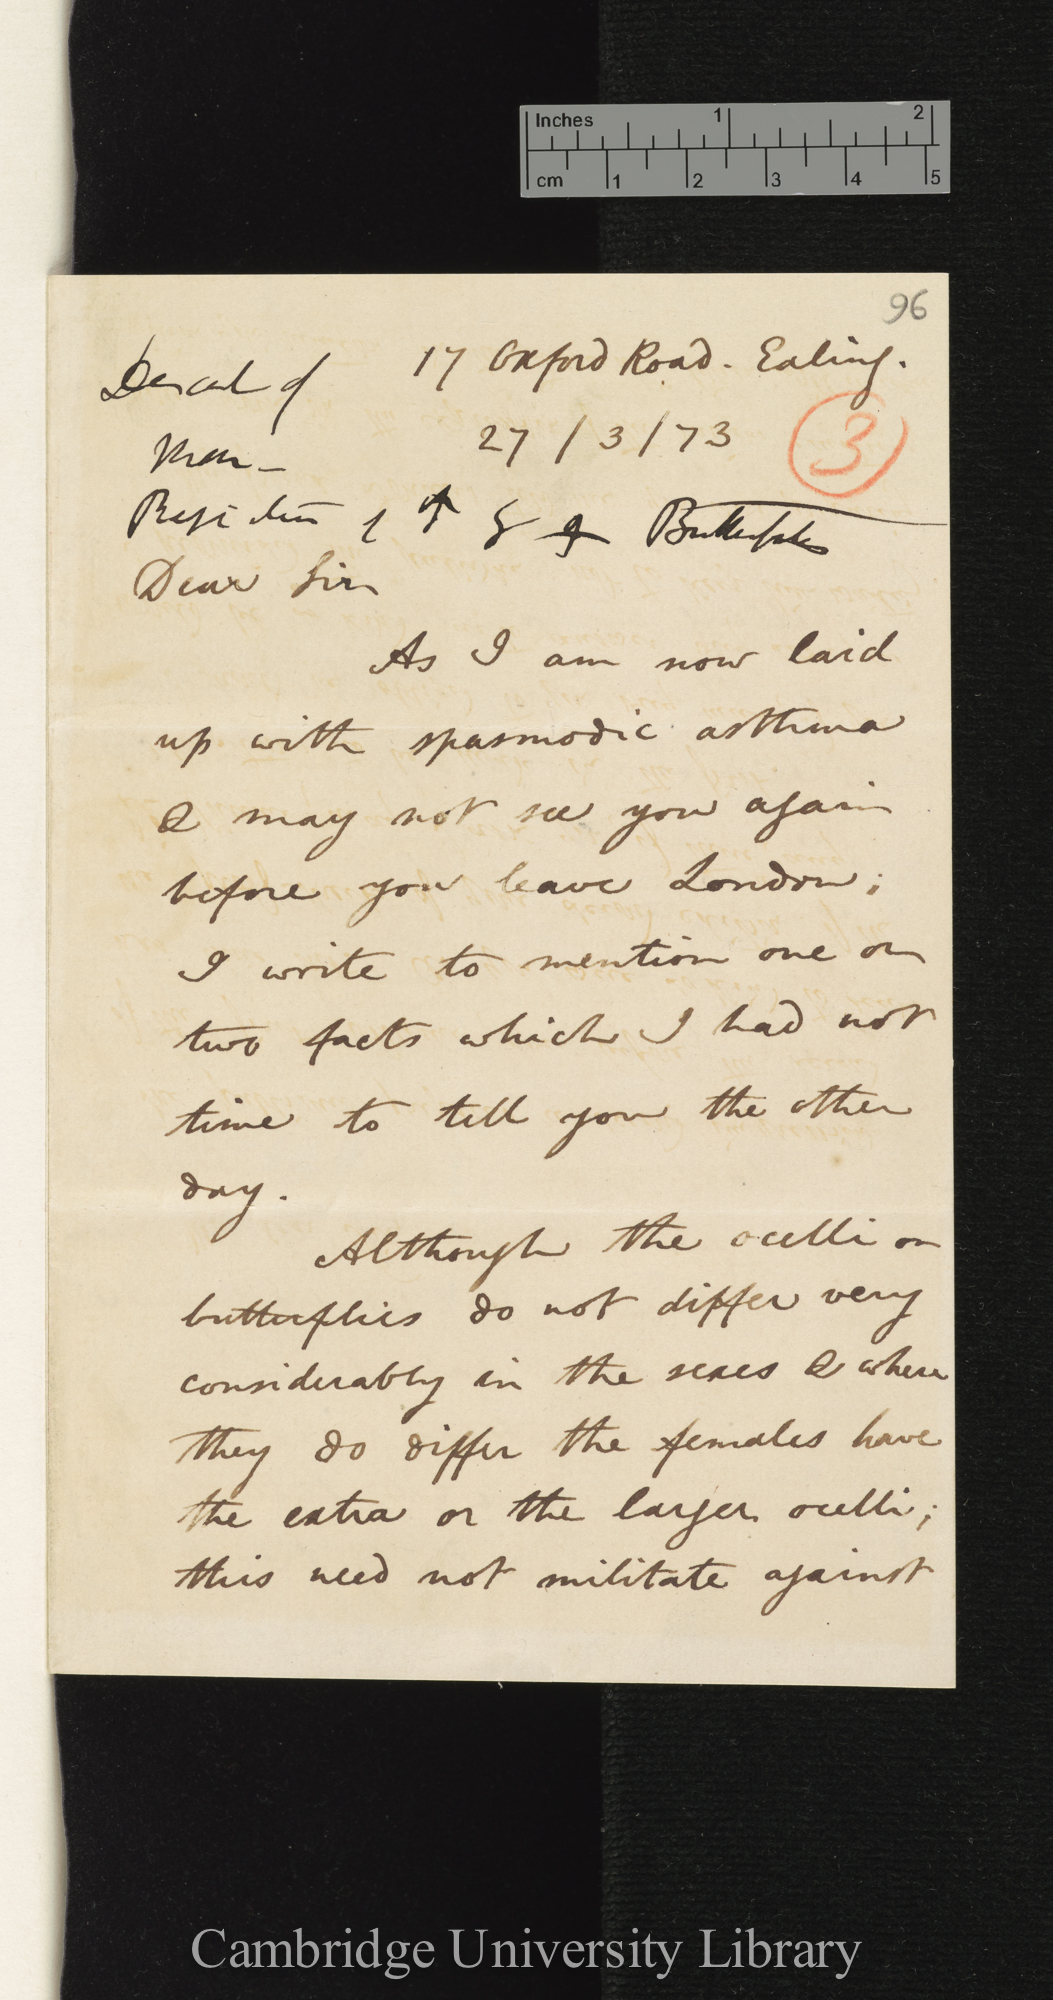 Inches 1 2
cm 1 2 3 4 5
96
17 Oxford Road. Ealing.
Descent of
27/3/73
3
Man—
of ♂ & ♀ Butterflies
Dear Sir
As I am now laid
up with spasmodic asthma
& may not see you again
before you leave London;
I write to mention one or
two facts which I had not
time to tell you the other
day.
Although the ocelli on
butterflies do not differ very
considerably in the sexes & where
they do differ the females have
the extra or the larger ocelli;
this need not militate against
Cambridge University Library